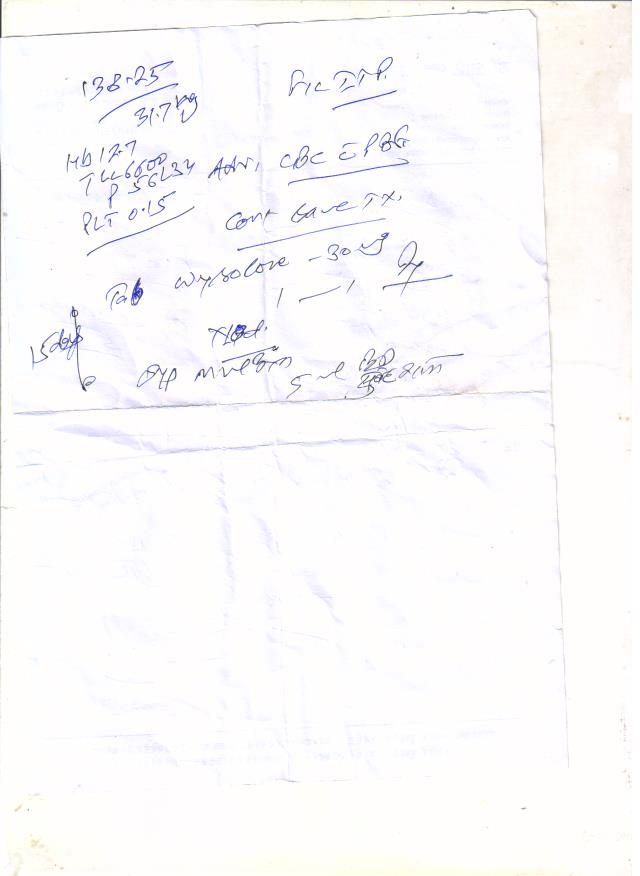 13.8.25
31.7 kg
F/C ITP.
Hb 12.7
TLC 6600
P 56 L 34
PLT 0.15
Adv. CBC c̄ PBF
Cont same Tx.
Tab Wysolone - 30 mg
1 — 1
15 days
Syp
5 ml BD